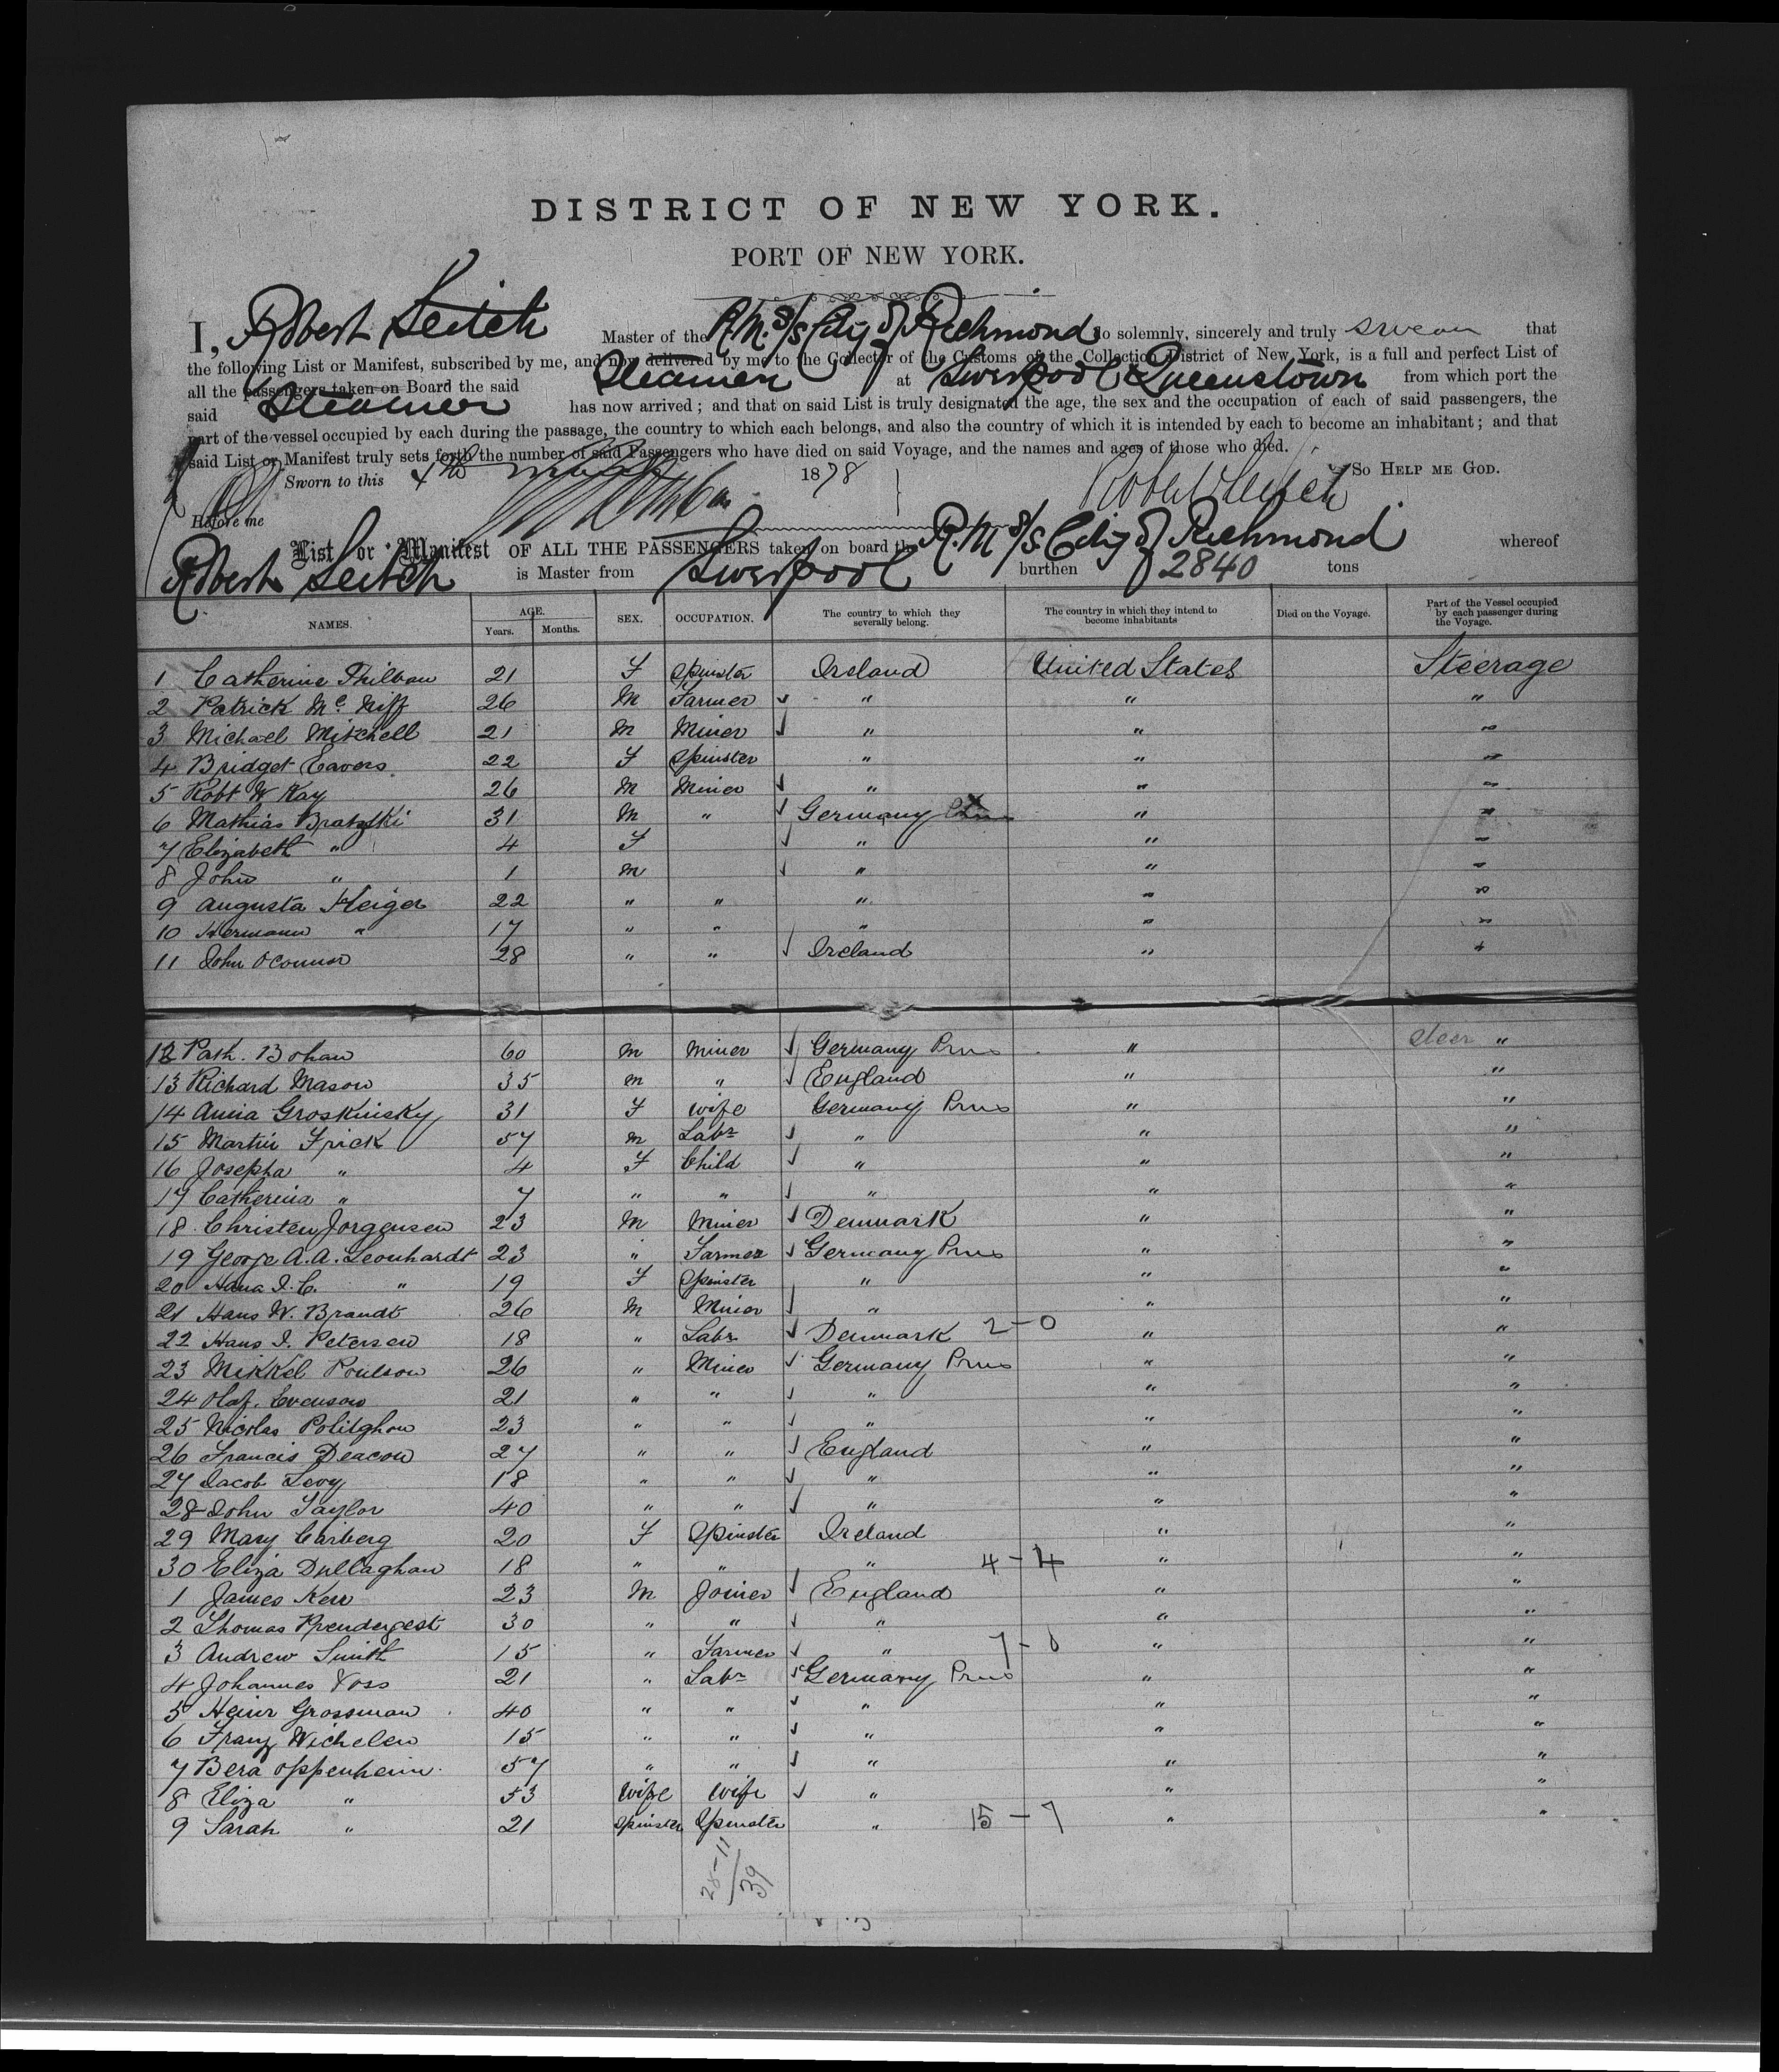 DISTRICT OF NEW YORK.
PORT OF NEW YORK.
I, Robert Leitch Master of the R.M. S/S City of Richmond do solemnly, sincerely and truly swear that
the following List or Manifest, subscribed by me, and now delivered by me to the Collector of the Customs of the Collection District of New York, is a full and perfect List of
all the passengers taken on Board the said Steamer at Liverpool & Queenstown from which port the
said Steamer has now arrived; and that on said List is truly designated the age, the sex and the occupation of each of said passengers, the
part of the vessel occupied by each during the passage, the country to which each belongs, and also the country of which it is intended by each to become an inhabitant; and that
said List or Manifest truly sets forth the number of said Passengers who have died on said Voyage, and the names and ages of those who died.
Sworn to this 1878 SO HELP ME GOD.
Robert Leitch
Before me
List or Manifest OF ALL THE PASSENGERS taken on board the R.M S/S City of Richmond whereof
Robert Leitch is Master from Liverpool burthen 2840 tons
NAMES. AGE. Years. Months. SEX. OCCUPATION. The country to which they severally belong. The country in which they intend to become inhabitants Died on the Voyage. Part of the Vessel occupied by each passenger during the Voyage.
1 Catherine Philbau 21 F Spinster Ireland United States Steerage
2 Patrick Mc Niff 26 M Farmer " " "
3 Michael Mitchell 21 M Miner " " "
4 Bridget Eavers 22 F Spinster " " "
5 Robt W Kay 26 M Miner " " "
6 Mathias Bratzski 31 M " Germany " "
7 Elizabeth " 4 F " " "
8 John " 1 M " " "
9 Augusta Kleiger 22 " " " " "
10 Hermann " 17 " " " " "
11 John OConnor 28 " " Ireland " "
12 Path. Bohan 60 M Miner Germany Prus " Steer "
13 Richard Mason 35 M " England " "
14 Anna Groskinsky 31 F Wife Germany Prus " "
15 Martin Frick 57 M Labr " " "
16 Josepha " 4 F Child " " "
17 Catherina " 7 " " " " "
18 Christen Jorgensen 23 M Miner Denmark " "
19 George A.A. Leonhardt 23 " Farmer Germany Prus " "
20 Hana I.C. " 19 F Spinster " " "
21 Hans W. Brandt 26 M Miner " " "
22 Hans I. Petersen 18 " Labr Denmark 2-0 " "
23 Mikkel Poulson 26 " Miner Germany Prus " "
24 Olaf. Evenson 21 " " " " "
25 Nicolas Politghon 23 " " " " "
26 Francis Deacon 27 " " England " "
27 Jacob Levy 18 " " " " "
28 John Taylor 40 " " " " "
29 Mary Carberg 20 F Spinster Ireland " "
30 Eliza Dullaghan 18 " " " 4-4 " "
1 James Kerr 23 M Joiner England " "
2 Thomas Prendergest 30 " " " " "
3 Andrew Smith 15 " Farmer " 7-0 " "
4 Johannes Voss 21 " Labr Germany Prus " "
5 Heinr Grossman 40 " " " " "
6 Franz Wichelen 15 " " " " "
7 Bera Oppenheim 57 " " " " "
8 Eliza " 53 Wife Wife " " "
9 Sarah " 21 Spinster Spinster " 15-7 " "
28-11
39